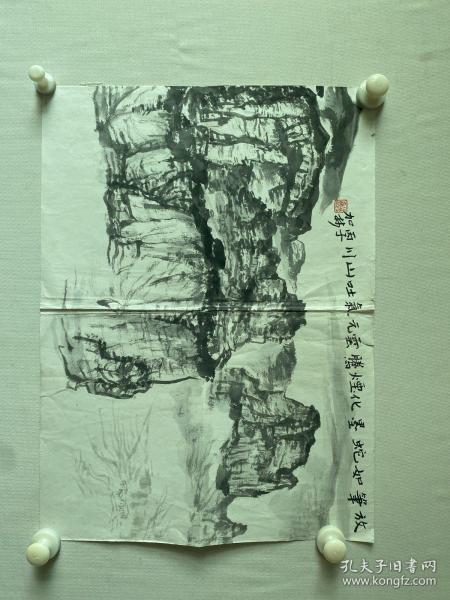 放筆如蛇墨化煙騰雲元氣吐山川雨加
孔夫子旧书网
www.kongfz.com